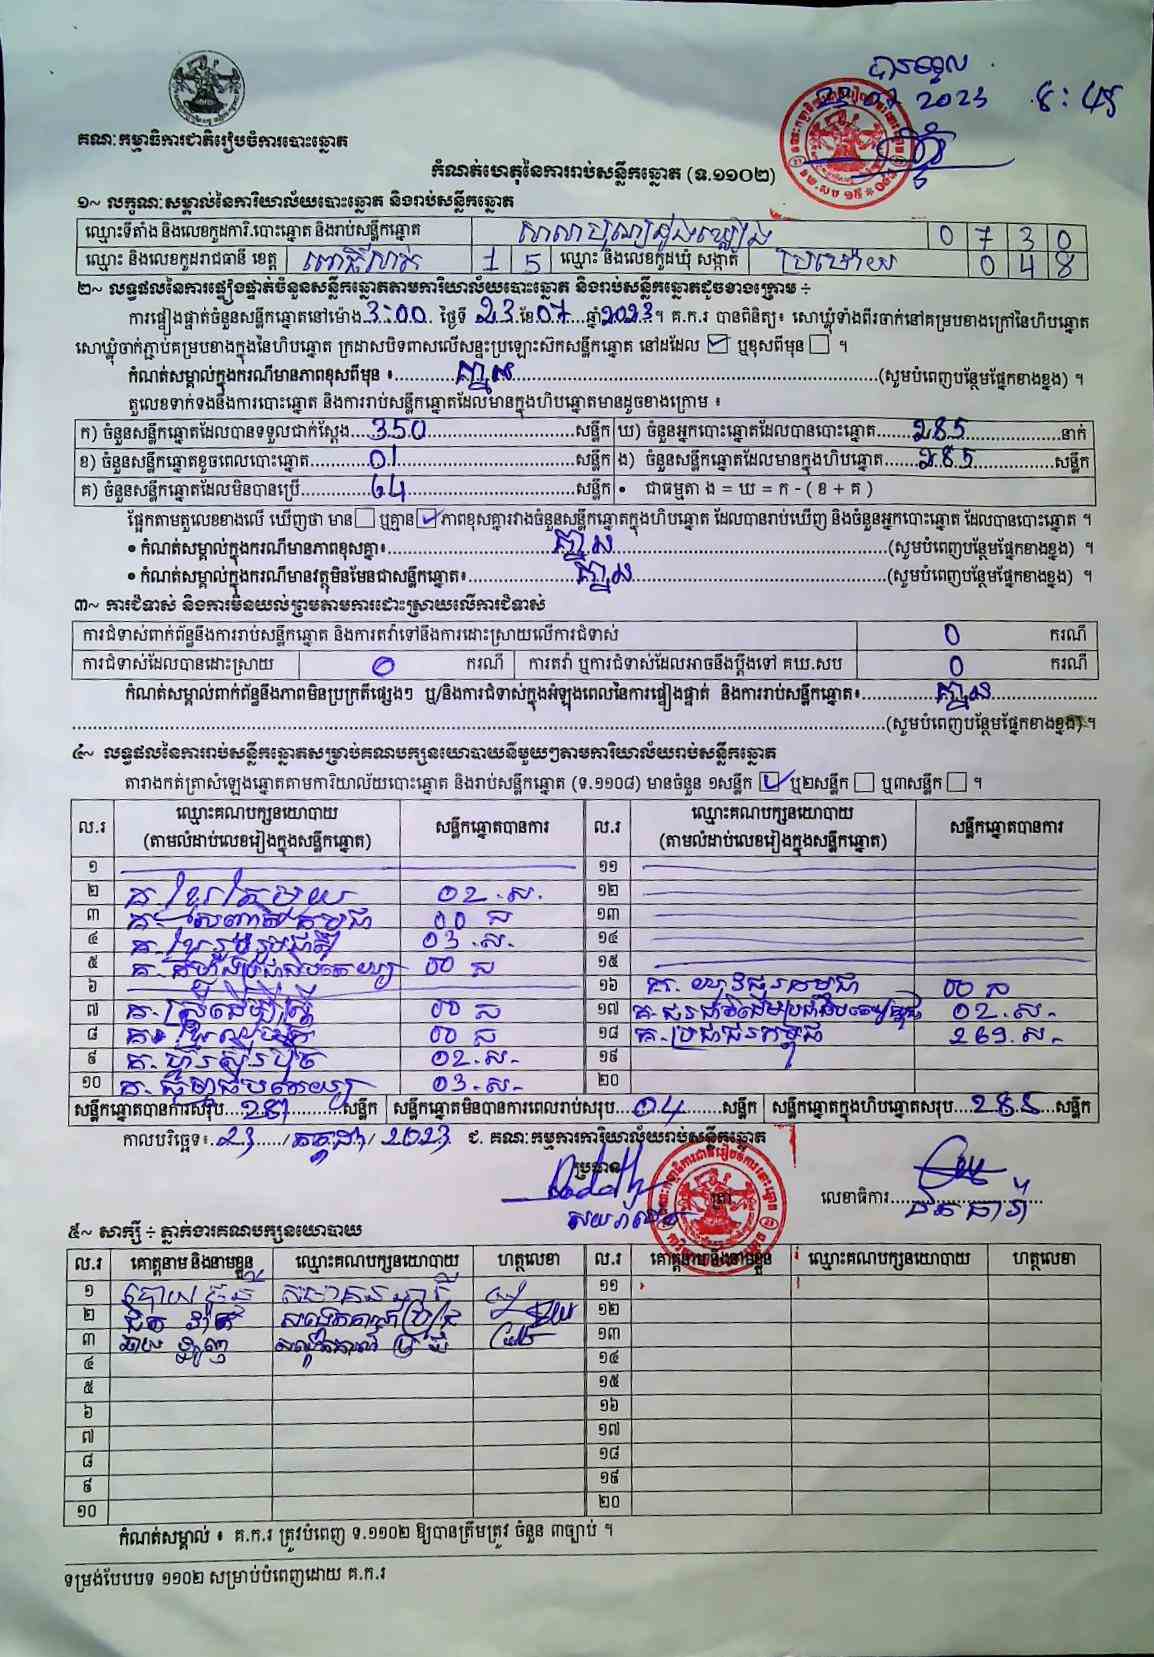 បានទទួល
2023 8:45
គណៈកម្មាធិការជាតិរៀបចំការបោះឆ្នោត
កំណត់ហេតុនៃការរាប់សន្លឹកឆ្នោត (ទ.១១០២)
១~ លក្ខណៈសម្គាល់នៃការិយាល័យបោះឆ្នោត និងរាប់សន្លឹកឆ្នោត
ឈ្មោះទីតាំង និងលេខកូដការិ.បោះឆ្នោត និងរាប់សន្លឹកឆ្នោត 0 7 3 0
ឈ្មោះ និងលេខកូដរាជធានី ខេត្ត ពោធិ៍សាត់ 1 5 ឈ្មោះ និងលេខកូដឃុំ សង្កាត់ ប្រម៉ោយ 0 4 8
២~ លទ្ធផលនៃការផ្ទៀងផ្ទាត់ចំនួនសន្លឹកឆ្នោតតាមការិយាល័យបោះឆ្នោត និងរាប់សន្លឹកឆ្នោតដូចខាងក្រោម ÷
ការផ្ទៀងផ្ទាត់ចំនួនសន្លឹកឆ្នោតនៅម៉ោង 3:00 ថ្ងៃទី 23 ខែ 07 ឆ្នាំ 2023 ។ គ.ក.រ បានពិនិត្យ៖ សោឃ្លុំទាំងពីរចាក់នៅគម្របខាងក្រៅនៃហិបឆ្នោត
សោឃ្លុំចាក់ភ្ជាប់គម្របខាងក្នុងនៃហិបឆ្នោត ក្រដាសបិទពាសលើសន្ទះប្រឡោះស៊កសន្លឹកឆ្នោត នៅដដែល ☑ ឬខុសពីមុន ☐ ។
កំណត់សម្គាល់ក្នុងករណីមានភាពខុសពីមុន ៖ គ្មាន (សូមបំពេញបន្ថែមផ្នែកខាងខ្នង) ។
តួលេខទាក់ទងនឹងការបោះឆ្នោត និងការរាប់សន្លឹកឆ្នោតដែលមានក្នុងហិបឆ្នោតមានដូចខាងក្រោម ៖
ក) ចំនួនសន្លឹកឆ្នោតដែលបានទទួលជាក់ស្តែង 350 សន្លឹក ឃ) ចំនួនអ្នកបោះឆ្នោតដែលបានបោះឆ្នោត 285 នាក់
ខ) ចំនួនសន្លឹកឆ្នោតខូចពេលបោះឆ្នោត 01 សន្លឹក ង) ចំនួនសន្លឹកឆ្នោតដែលមានក្នុងហិបឆ្នោត 285 សន្លឹក
គ) ចំនួនសន្លឹកឆ្នោតដែលមិនបានប្រើ 64 សន្លឹក • ជាធម្មតា ង = ឃ = ក - ( ខ + គ )
ផ្អែកតាមតួលេខខាងលើ ឃើញថា មាន ☐ ឬគ្មាន ☑ ភាពខុសគ្នារវាងចំនួនសន្លឹកឆ្នោតក្នុងហិបឆ្នោត ដែលបានរាប់ឃើញ និងចំនួនអ្នកបោះឆ្នោត ដែលបានបោះឆ្នោត ។
• កំណត់សម្គាល់ក្នុងករណីមានភាពខុសគ្នា៖ គ្មាន (សូមបំពេញបន្ថែមផ្នែកខាងខ្នង) ។
• កំណត់សម្គាល់ក្នុងករណីមានវត្ថុមិនមែនជាសន្លឹកឆ្នោត៖ គ្មាន (សូមបំពេញបន្ថែមផ្នែកខាងខ្នង) ។
៣~ ការជំទាស់ និងការមិនយល់ព្រមតាមការដោះស្រាយលើការជំទាស់
ការជំទាស់ពាក់ព័ន្ធនឹងការរាប់សន្លឹកឆ្នោត និងការតវ៉ាទៅនឹងការដោះស្រាយលើការជំទាស់ 0 ករណី
ការជំទាស់ដែលបានដោះស្រាយ 0 ករណី ការតវ៉ា ឬការជំទាស់ដែលអាចនឹងប្តឹងទៅ គឃ.សប 0 ករណី
កំណត់សម្គាល់ពាក់ព័ន្ធនឹងភាពមិនប្រក្រតីផ្សេងៗ ឬ/និងការជំទាស់ក្នុងអំឡុងពេលនៃការផ្ទៀងផ្ទាត់ និងការរាប់សន្លឹកឆ្នោត៖ គ្មាន
(សូមបំពេញបន្ថែមផ្នែកខាងខ្នង) ។
៤~ លទ្ធផលនៃការរាប់សន្លឹកឆ្នោតសម្រាប់គណបក្សនយោបាយនីមួយៗតាមការិយាល័យរាប់សន្លឹកឆ្នោត
តារាងកត់ត្រាសំឡេងឆ្នោតតាមការិយាល័យបោះឆ្នោត និងរាប់សន្លឹកឆ្នោត (ទ.១១០៨) មានចំនួន ១សន្លឹក ☑ ឬ២សន្លឹក ☐ ឬ៣សន្លឹក ☐ ។
ល.រ ឈ្មោះគណបក្សនយោបាយ (តាមលំដាប់លេខរៀងក្នុងសន្លឹកឆ្នោត) សន្លឹកឆ្នោតបានការ ល.រ ឈ្មោះគណបក្សនយោបាយ (តាមលំដាប់លេខរៀងក្នុងសន្លឹកឆ្នោត) សន្លឹកឆ្នោតបានការ
១ ១១
២ គ. ខ្មែរតែមួយ 02.ស. ១២
៣ 00 ស ១៣
៤ គ. ខ្មែររួបរួមជាតិ 03.ស. ១៤
៥ 00 ស ១៥
៦ ១៦ គ. យុវជនកម្ពុជា 00 ស
៧ គ. ស្ត្រីដើម្បីស្ត្រី 00 ស ១៧ 02.ស.
៨ 00 ស ១៨ គ. ប្រជាជនកម្ពុជា 269.ស.
៩ គ. ហ្វ៊ុនស៊ិនប៉ិច 02.ស. ១៩
១០ គ. ធម្មាធិបតេយ្យ 03.ស. ២០
សន្លឹកឆ្នោតបានការសរុប សន្លឹក សន្លឹកឆ្នោតមិនបានការពេលរាប់សរុប 04 សន្លឹក សន្លឹកឆ្នោតក្នុងហិបឆ្នោតសរុប 285 សន្លឹក
កាលបរិច្ឆេទ៖ 23 / កក្កដា / 2023 ជ. គណៈកម្មការការិយាល័យរាប់សន្លឹកឆ្នោត
ប្រធាន លេខាធិការ
៥~ សាក្សី ÷ ភ្នាក់ងារគណបក្សនយោបាយ
ល.រ គោត្តនាម និងនាមខ្លួន ឈ្មោះគណបក្សនយោបាយ ហត្ថលេខា ល.រ គោត្តនាម និងនាមខ្លួន ឈ្មោះគណបក្សនយោបាយ ហត្ថលេខា
១ ១១
២ ១២
៣ ១៣
៤ ១៤
៥ ១៥
៦ ១៦
៧ ១៧
៨ ១៨
៩ ១៩
១០ ២០
កំណត់សម្គាល់ ៖ គ.ក.រ ត្រូវបំពេញ ទ.១១០២ ឱ្យបានត្រឹមត្រូវ ចំនួន ៣ច្បាប់ ។
ទម្រង់បែបបទ ១១០២ សម្រាប់បំពេញដោយ គ.ក.រ